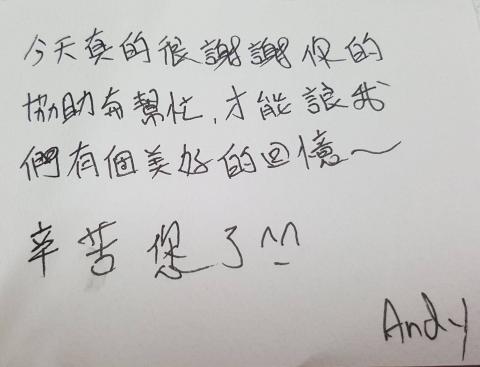 今天真的很謝謝你的
協助與幫忙,才能讓我
們有個美好的回憶～
辛苦您了^_^
Andy